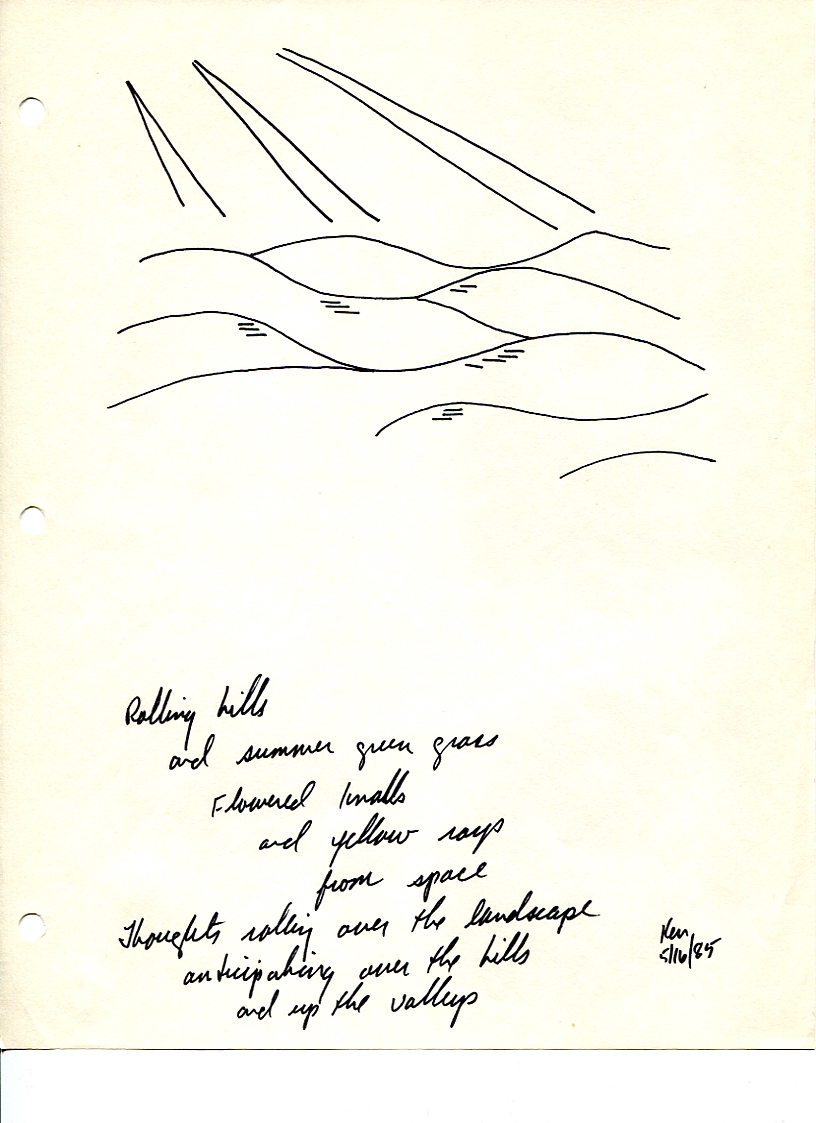 Rolling hills
and summer green grass
Flowered knolls
and yellow rays
from space
Thoughts rolling over the landscape
anticipating over the hills
and up the valleys
Ken
5/16/85